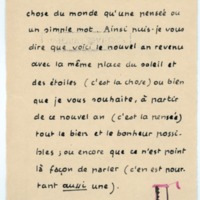 chose du monde qu'une pensée ou
un simple mot. Ainsi puis-je vous
dire que voici le nouvel an revenu
avec la même place du soleil et
des étoiles (c'est la chose) ou bien
que je vous souhaite, à partir
de ce nouvel an (c'est la pensée)
tout le bien et le bonheur possi-
bles ; ou encore que ce n'est point
là façon de parler (c'en est pour-
tant aussi une).